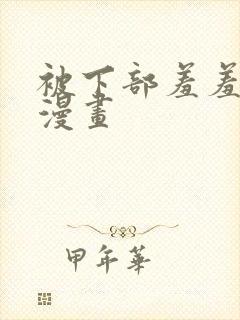 被下部羞羞
漫畫
甲年華